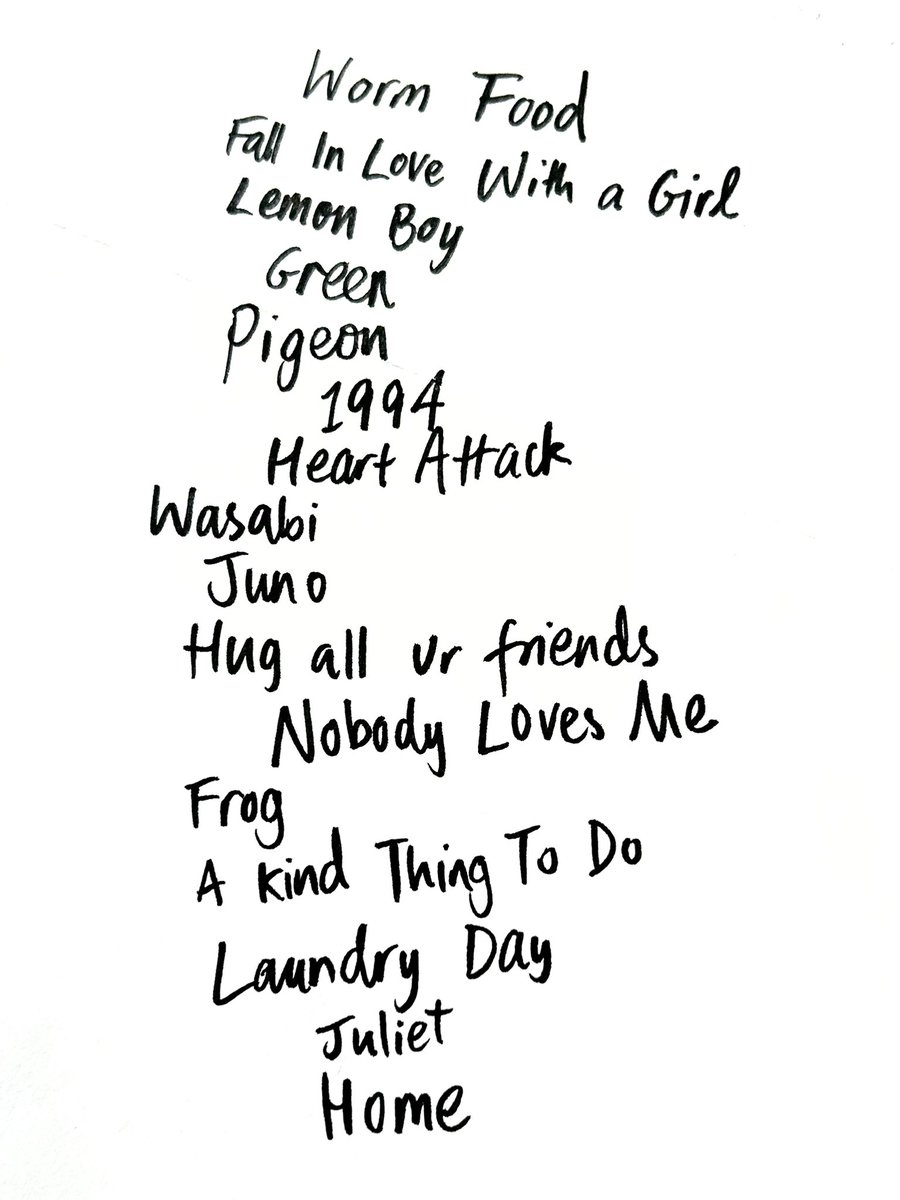 Worm Food
Fall In Love With a Girl
Lemon Boy
Green
Pigeon
1994
Heart Attack
Wasabi
Juno
Hug all ur friends
Nobody Loves Me
Frog
A Kind Thing To Do
Laundry Day
Juliet
Home